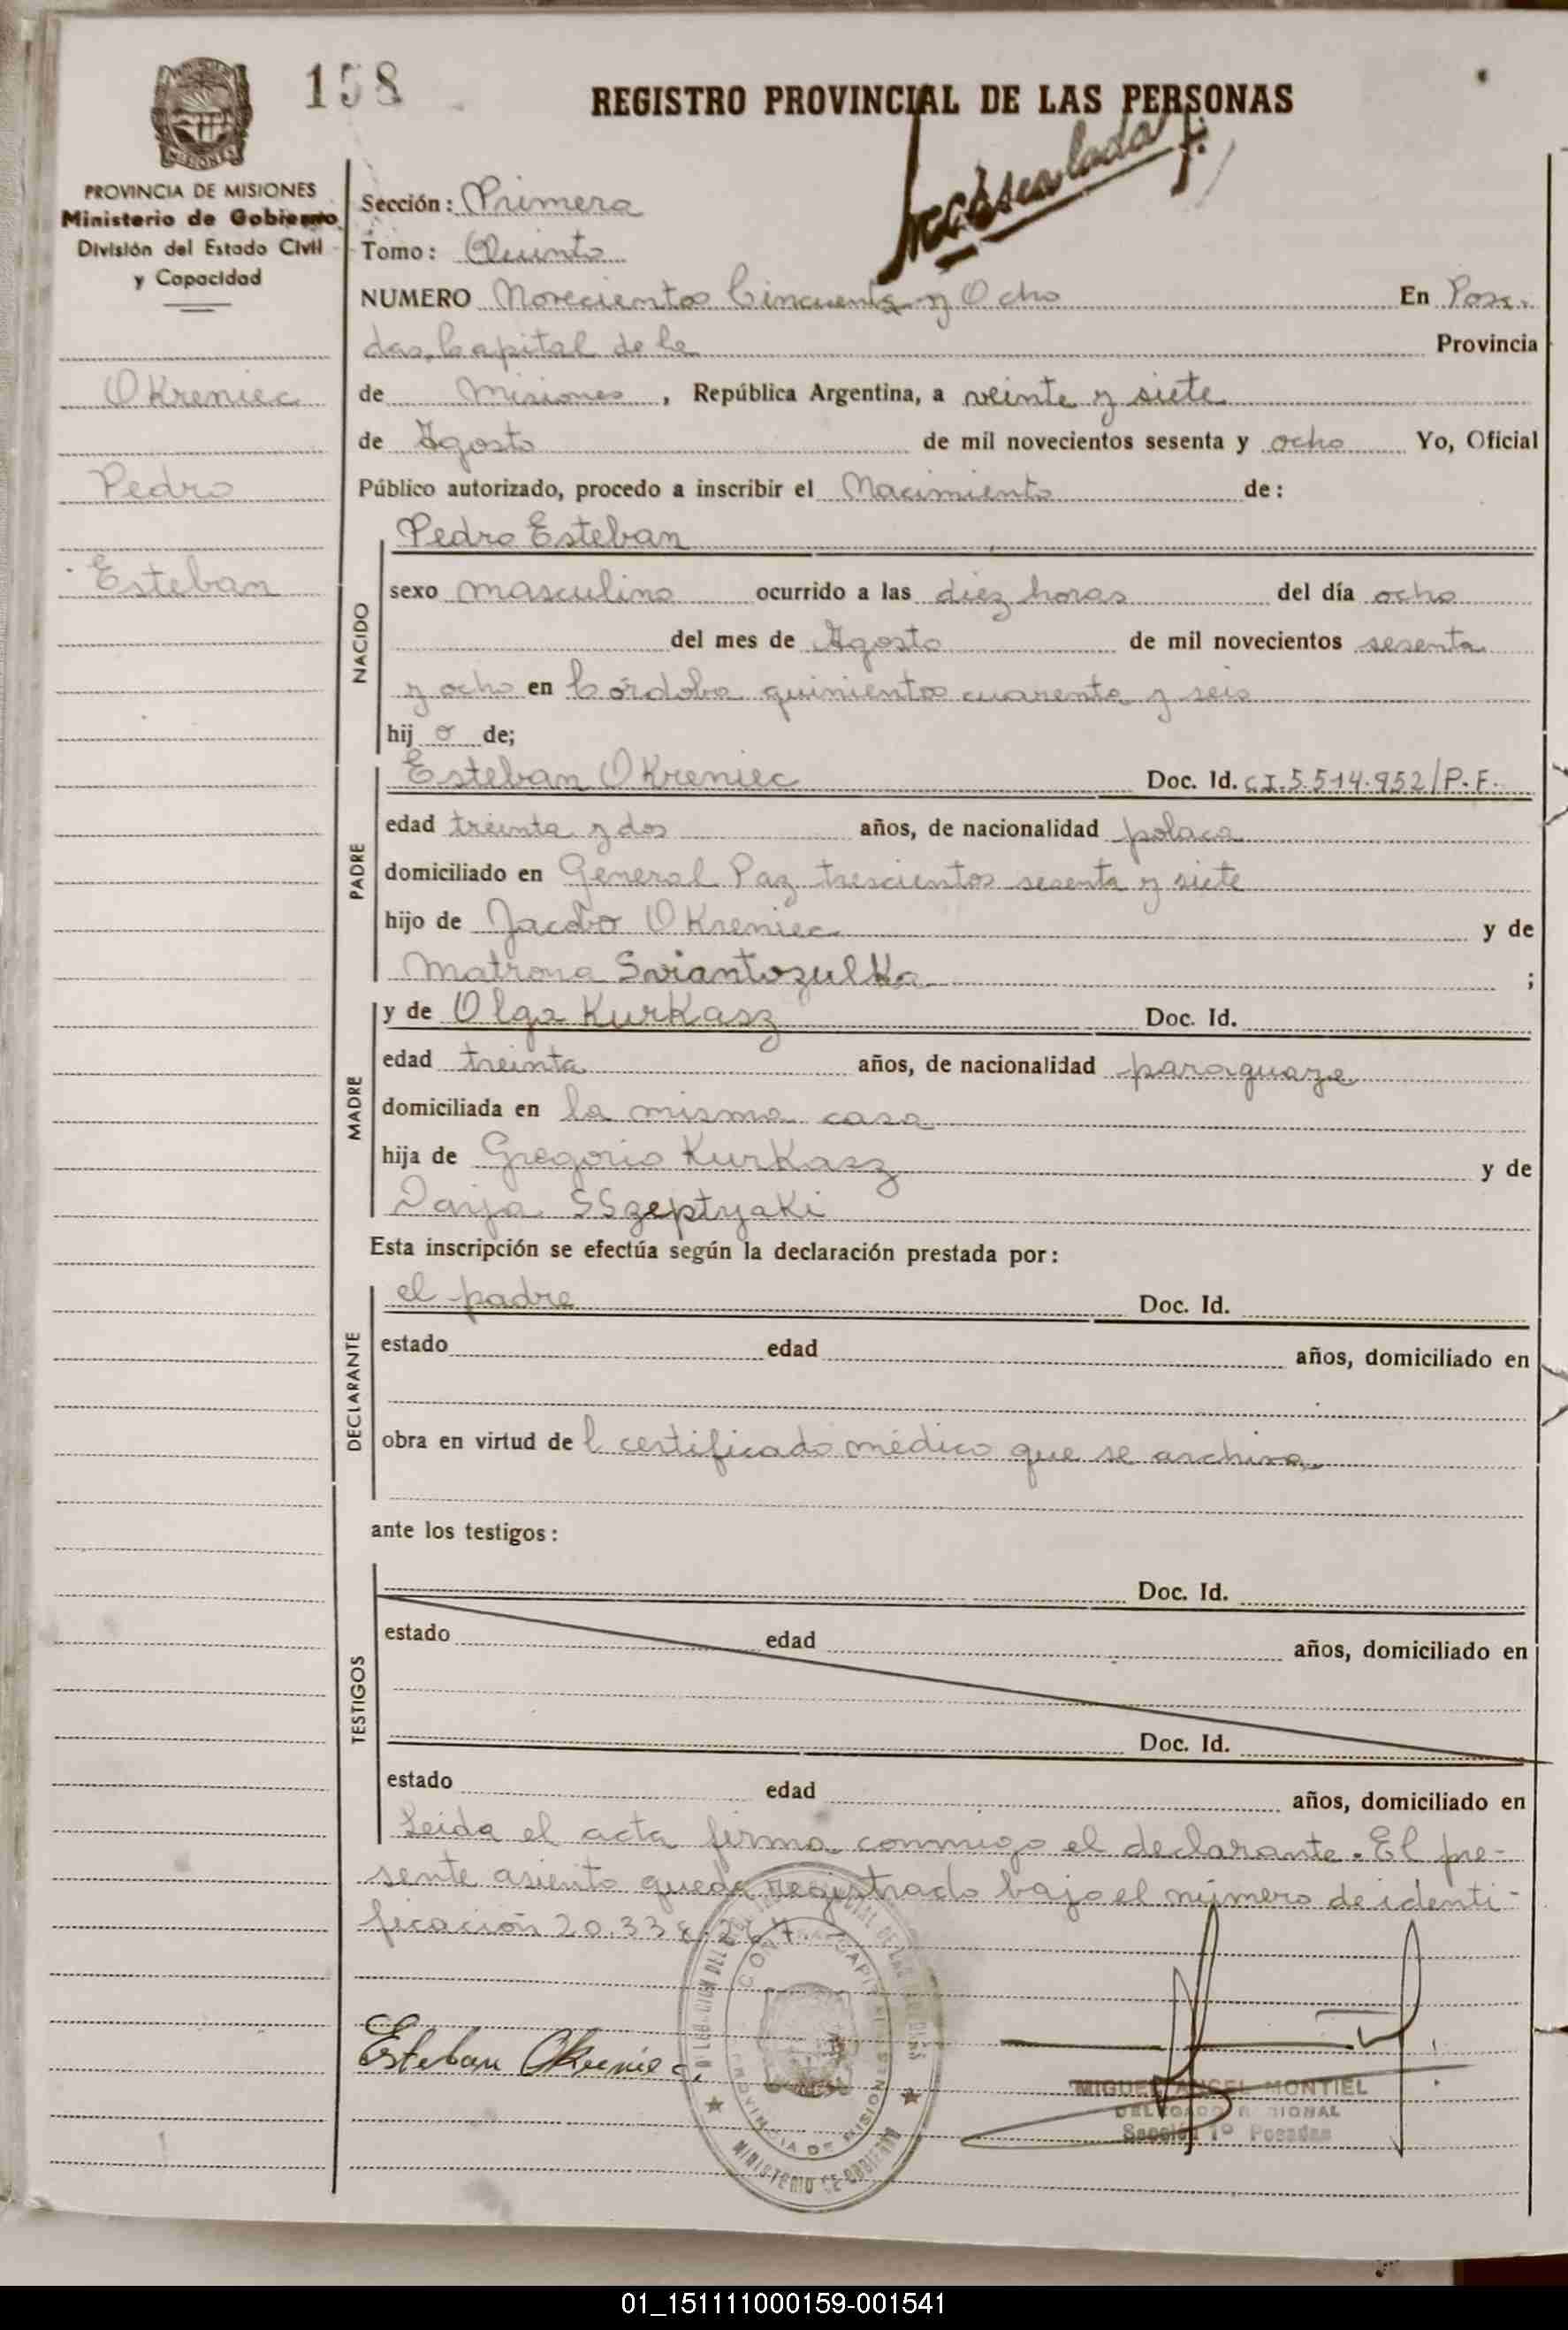 158
REGISTRO PROVINCIAL DE LAS PERSONAS
MISIONES
PROVINCIA DE MISIONES
Ministerio de Gobierno
División del Estado Civil
y Capacidad
Okreniec
Pedro
Esteban
Sección: Primera
Tomo: Quinto
NUMERO Novecientos Cincuenta y Ocho En Posa-
das, Capital de la Provincia
de Misiones, República Argentina, a veinte y siete
de Agosto de mil novecientos sesenta y ocho Yo, Oficial
Público autorizado, procedo a inscribir el Nacimiento de:
NACIDO
Pedro Esteban
sexo masculino ocurrido a las diez horas del día ocho
del mes de Agosto de mil novecientos sesenta
y ocho en Córdoba quinientos cuarenta y seis
hij o de;
PADRE
Esteban Okreniec Doc. Id. C.I. 5.514.952/P.F.
edad treinta y dos años, de nacionalidad polaca
domiciliado en General Paz trescientos sesenta y siete
hijo de Jacobo Okreniec y de
Matrona Sviantozulka ;
MADRE
y de Olga Kurkasz Doc. Id.
edad treinta años, de nacionalidad paraguaya
domiciliada en la misma casa
hija de Gregorio Kurkasz y de
Darja SSzeptyaki
Esta inscripción se efectúa según la declaración prestada por:
DECLARANTE
el padre Doc. Id.
estado edad años, domiciliado en
obra en virtud de l certificado médico que se archiva
ante los testigos:
TESTIGOS
Doc. Id.
estado edad años, domiciliado en
Doc. Id.
estado edad años, domiciliado en
Leida el acta firma conmigo el declarante. El pre-
sente asiento queda registrado bajo el número de identi-
ficación 20.338.267.
Esteban Okreniec.
PROVINCIA DE MISIONES
MINISTERIO DE GOBIERNO
MIGUEL ANGEL MONTIEL
DELEGADO REGIONAL
Sección 1º Posadas
01_151111000159-001541